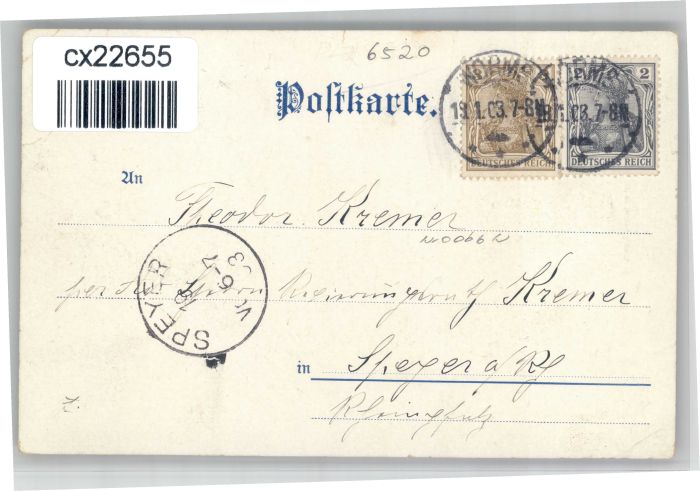 cx22655
6520
Postkarte.
WORMS WORMS
19.1.03.7-8N. 19.1.03.7-8N.
2
DEUTSCHES REICH DEUTSCHES REICH
An
Theodor Kremer
per Herrn Regierungsrath Kremer
SPEYER
6-7
in Speyer a/Rh
Rheinpfalz